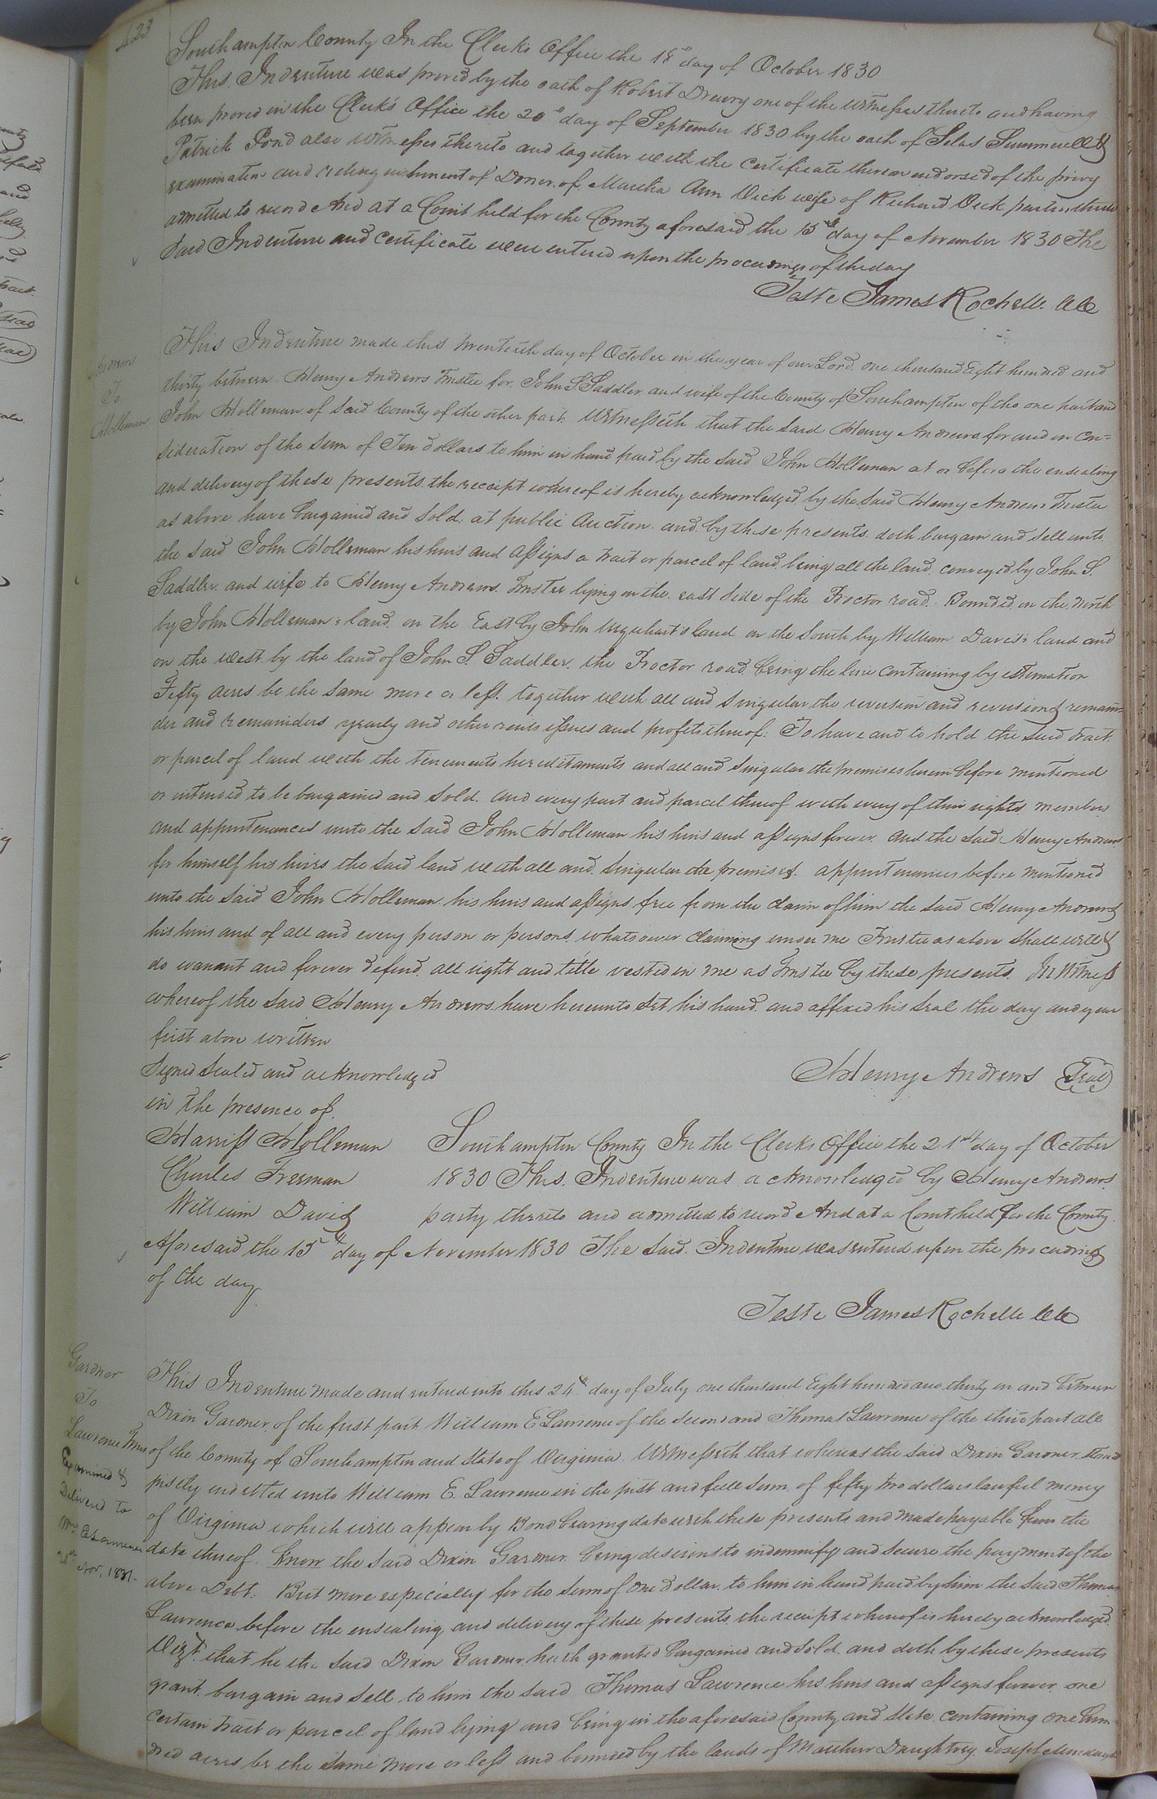 423
Southampton County In the Clerks Office the 18th day of October 1830
This Indenture was proved by the oath of Robert Drewry one of the witnesses thereto and having
been proved in the Clerk's Office the 20th day of September 1830 by the oath of Silas Summerell &
Patrick Pond also witnesses thereto and together with the certificate thereon endorsed of the privy
examination and relinquishment of Dower of Martha Ann Vick wife of Richard Vick parties thereto
admitted to record And at a Court held for the County aforesaid the 15th day of November 1830 The
Said Indenture and certificate were entered upon the proceedings of the day
Teste James Rochelle
Andrews
To
Holleman
This Indenture made this twentieth day of October in the year of our Lord one thousand Eight hundred and
thirty between Henry Andrews Trustee for John S Saddler and wife of the County of Southampton of the one part and
John Holleman of said County of the other part Witnesseth that the said Henry Andrews for and in Con=
sideration of the sum of Ten dollars to him in hand paid by the said John Holleman at or before the ensealing
and delivery of these presents, the receipt whereof is hereby acknowledged by the said Henry Andrews Trustee
as above have bargained and sold, at public Auction and by these presents doth bargain and sell unto
the said John Holleman his heirs and assigns a tract or parcel of land being all the land conveyed by John S.
Saddler and wife to Henry Andrews Trustee lying on the east side of the Proctor road. Bounded on the North
by John Holleman's land on the East by John Urquhart's land on the South by William Davis's land and
on the West by the land of John S. Saddler, the Proctor road being the line containing by estimation
Fifty acres be the same more or less together with all and singular the reversion and reversions remain=
der and remainders yearly and other rents issues and profits thereof: To have and to hold the said tract
or parcel of land with the tenements hereditaments and all and singular the premises herein before mentioned
or intended to be bargained and sold. and every part and parcel thereof with every of their rights members
and appurtenances unto the said John Holleman his heirs and assigns forever. And the said Henry Andrews
for himself his heirs the said land with all and singular the premises & appurtenances before mentioned
unto the said John Holleman, his heirs and assigns free from the claim of him the said Henry Andrews
his heirs and of all and every person or persons whatsoever claiming under me Trustee as above shall will &
do warrant and forever defend, all right and title vested in me as Trustee by these presents. In Witness
whereof the said Henry Andrews have hereunto set his hand and affixed his seal the day and year
first above written
Signed Sealed and acknowledged
in the presence of
Henry Andrews (Seal)
Harriss Holleman
Charles Freeman
William Davis
Southampton County In the Clerks Office the 21st day of October
1830 This Indenture was acknowledged by Henry Andrews
party thereto and admitted to record And at a Court held for the County
Aforesaid the 15th day of November 1830 The said Indenture was entered upon the proceedings
of the day
Teste James Rochelle
Gardner
To
Lawrence Trus
Examined &
Delivered to
Lawrence
Nov. 1831.
This Indenture made and entered into this 24th day of July one thousand Eight hundred and thirty in and between
Dixon Gardner of the first part William E Lawrence of the second and Thomas Lawrence of the third part all
of the County of Southampton and State of Virginia Witnesseth that whereas the said Dixon Gardner stands
justly indebted unto William E. Lawrence in the just and full sum of fifty two dollars lawful money
of Virginia which will appear by Bond bearing date with these presents and made payable from the
date thereof Know the said Dixon Gardner being desirous to indemnify and secure the payment of the
above Debt. But more especially for the sum of one dollar to him in hand paid by him the said Thomas
Lawrence before the ensealing and delivery of these presents the receipt whereof is hereby acknowledged.
that he the said Dixon Gardner hath granted bargained and sold and doth by these presents
grant bargain and sell to him the said Thomas Lawrence his heirs and assigns forever one
certain tract or parcel of land lying and being in the aforesaid County and State containing one hun
dred acres be the same more or less and bounded by the lands of Matthew Daughtrey Joseph